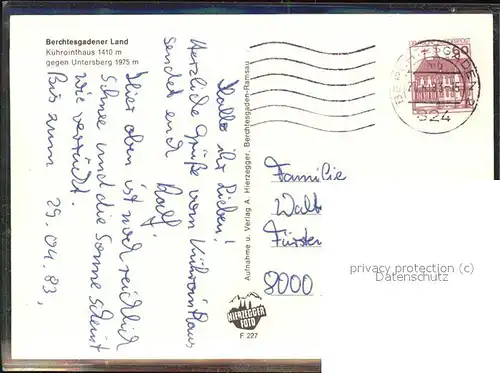 Berchtesgadener Land
Kührointhaus 1410 m
gegen Untersberg 1975 m
Hallo ihr Lieben!
Herzliche Grüße vom Kührointhaus
sendet euch Ralf.
Hier oben ist noch reichlich
Schnee und die Sonne scheint
wie verrückt.
Bis zum 29.04.83,
Aufnahme u. Verlag A. Hierzegger, Berchtesgaden-Ramsau
HIERZEGGER
FOTO
F 227
Familie
Walt
Fürsten
8000
privacy protection (c)
Datenschutz